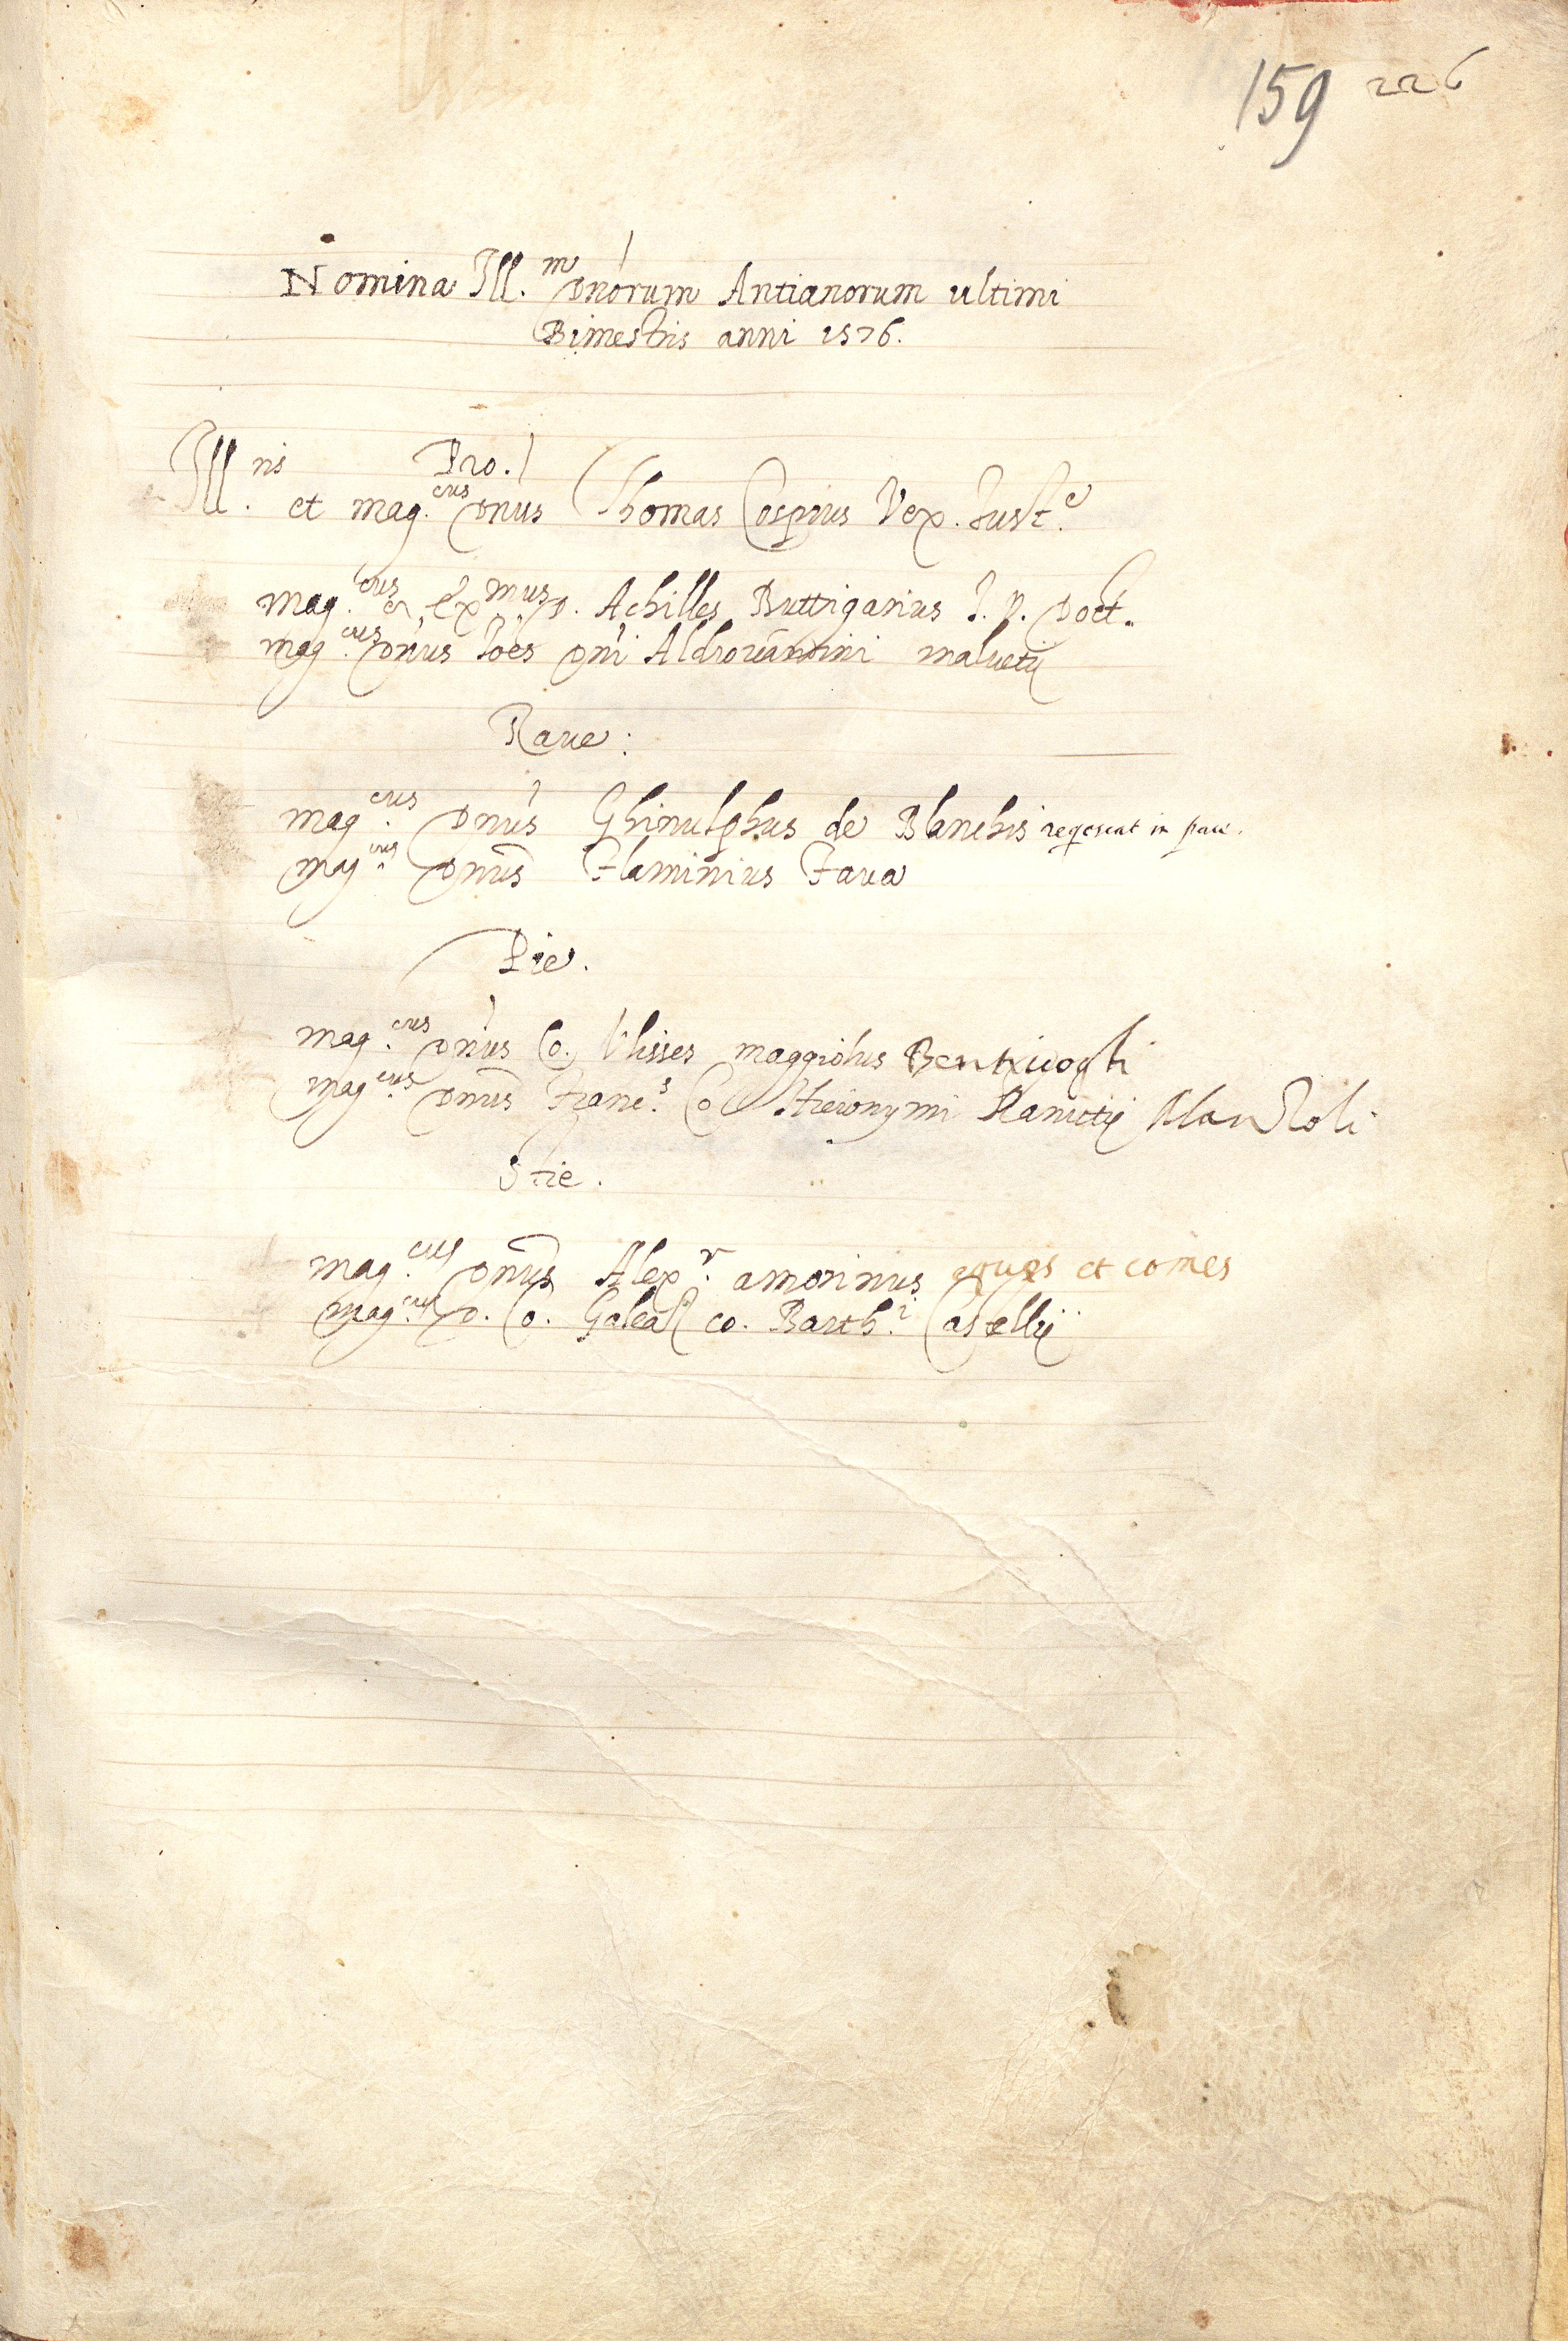 159 226
Nomina Ill.m Dnorum Antianorum ultimi
Bimestris anni 1576.
Pro.
Ill.ris et mag.cus Dnus Thomas Cospius Vex. Just.e
mag.cus et Ex.mus D. Achilles Buttrigarius J. V. Doct.
mag.cus Dnus Joes Dni Aldrovandini malvetij
Rave:
mag.cus Dnus Ghinulphus de Blanchis reqescat in pace.
mag.cus Dnus Flaminius Fava
Pie.
mag.cus Dnus Co. Ulisses maggiolus Bentivogli
mag.cus Dnus Franc.s Co. Hieronymi Ranutij Manzoli
Stie.
mag.cus Dnus Alex.r amorinus eques et comes
mag.cus D. Co. Galeaz co. Barth.i Castellij